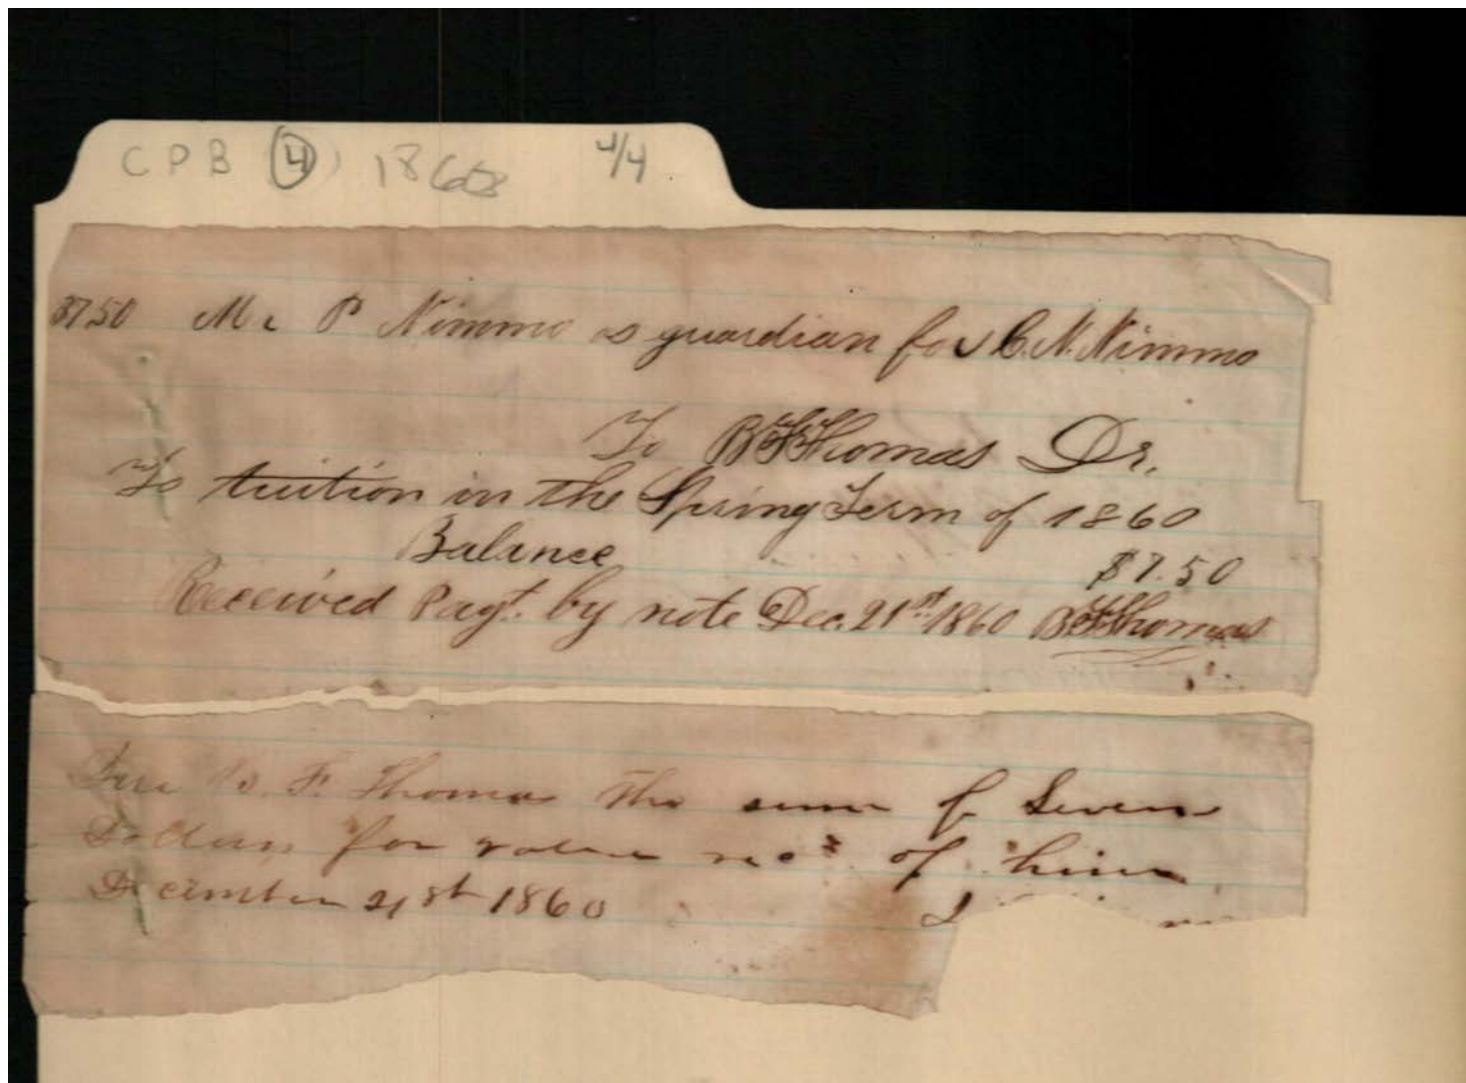 CPB (4) 1860 4/4
$7.50 Mr P Nimmo as guardian for C. N. Nimmo
To B F Thomas Dr.
To tuition in the Spring Term of 1860
Balance $7.50
Received Payt. by note Dec. 21st 1860 B F Thomas
Due B. F. Thomas the sum of Seven
Dollars for value recd of him
December 21st 1860